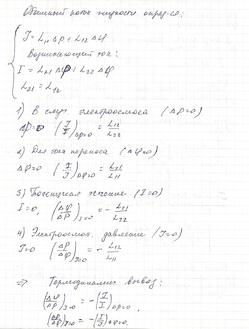 Объемный поток жидкости опред-ся:
J = L₁₁ Δp + L₁₂ Δφ
Возникающий ток:
I = L₂₁ Δp + L₂₂ Δφ
L₂₁ = L₁₂
1) В случ. электроосмоса (Δp=0)
Δp=0 (J/I)Δp=0 = L₁₂/L₂₂
2) Для тока переноса (Δφ=0)
Δφ=0 (I/J)Δφ=0 = L₂₁/L₁₁
3) Потенциал течения (I=0)
I=0, (Δφ/Δp)I=0 = - L₂₁/L₂₂
4) Электроосмот. давление (J=0)
J=0 (Δp/Δφ)J=0 = - L₁₂/L₁₁
⇒ Термодинамич. вывод:
(Δφ/Δp)I=0 = -(J/I)Δp=0,
(Δp/Δφ)J=0 = -(I/J)Δφ=0.